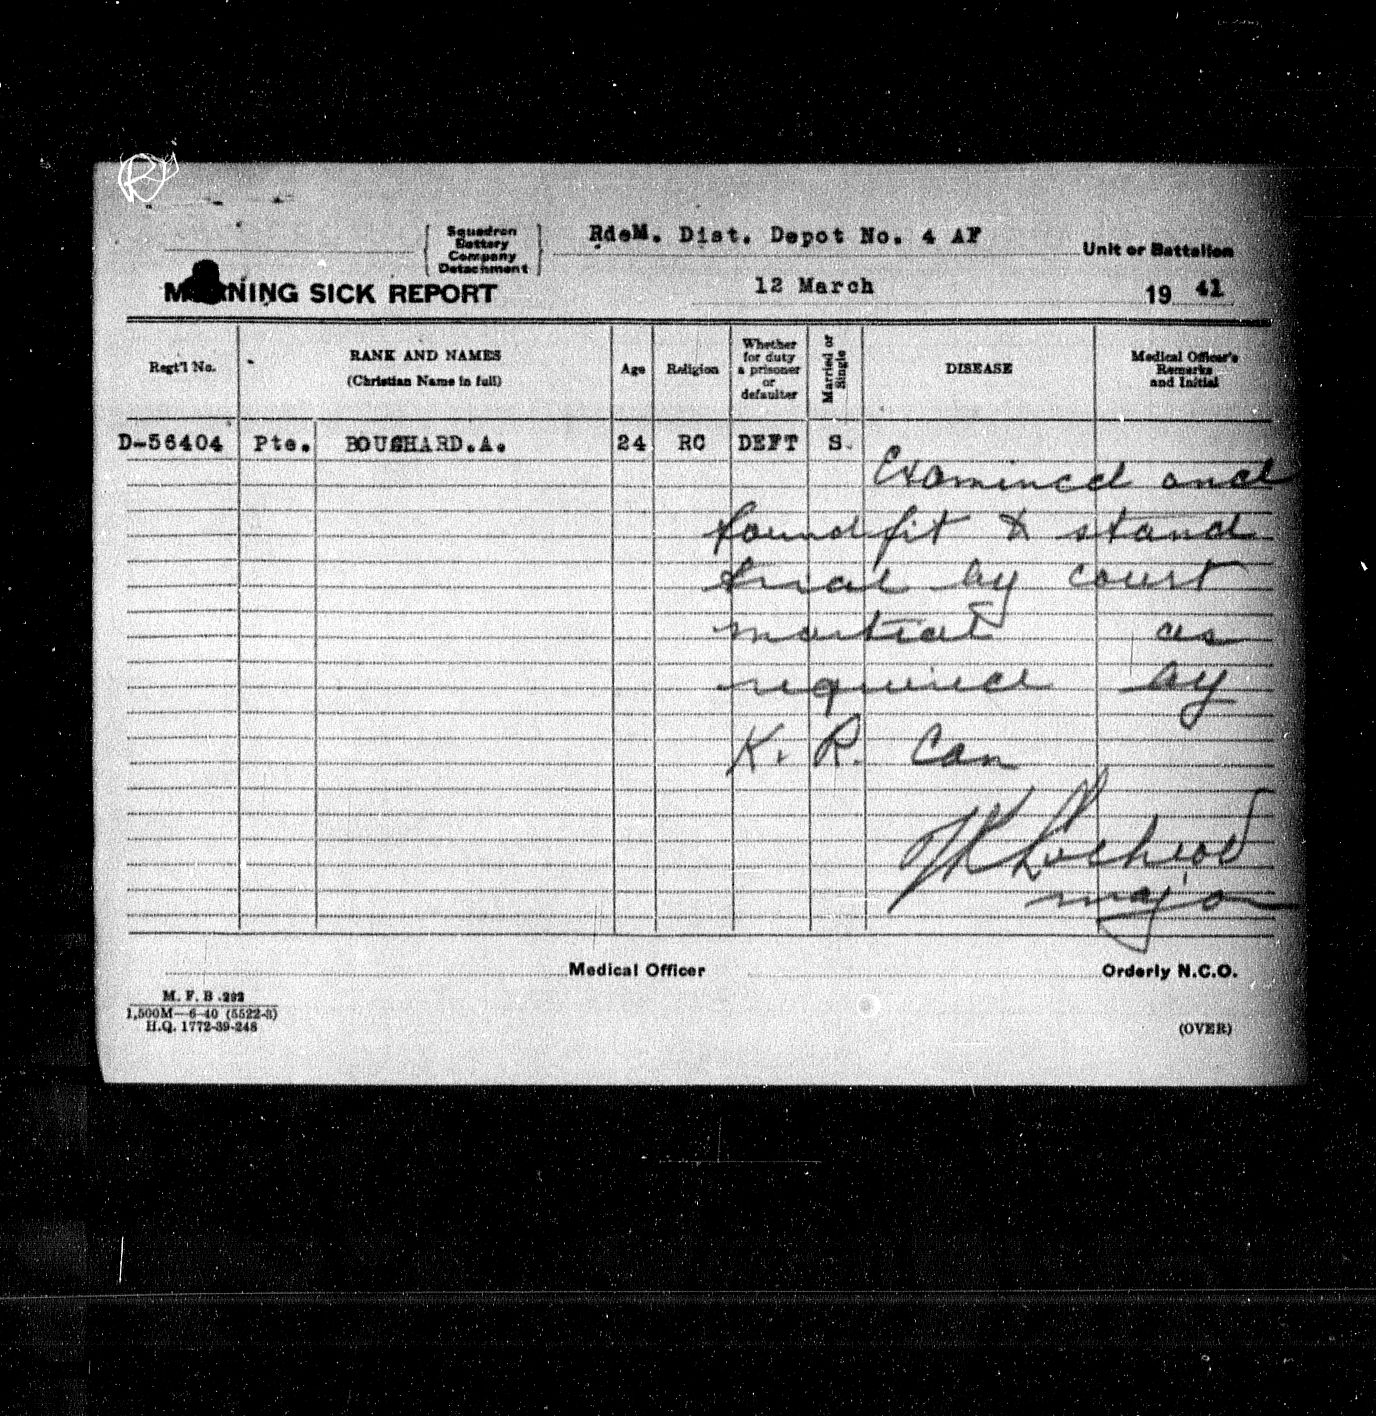 Squadron
Battery
Company
Detachment
RdeM. Dist. Depot No. 4 AF Unit or Battalion
MORNING SICK REPORT 12 March 19 41
Regt'l No. RANK AND NAMES (Christian Name in full) Age Religion Whether for duty a prisoner or defaulter Married or Single DISEASE Medical Officer's Remarks and Initial
D-56404 Pte. BOUCHARD.A. 24 RC DEFT S.
Examined and
found fit & stand
trial by court
martial as
required by
K. R. Can
Lochead
major
Medical Officer Orderly N.C.O.
M. F. B. 292
1,500M—6-40 (5522-3)
H.Q. 1772-39-248
(OVER)